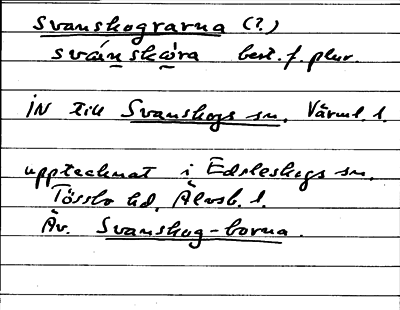 Svanskograrna (?)
svánskὼra best. f. plur.
IN till Svanskogs sn, Värml. l.
upptecknat i Edsleskogs sn,
Tössbo hd, Älvsb. l.
Äv. Svanskog-borna.